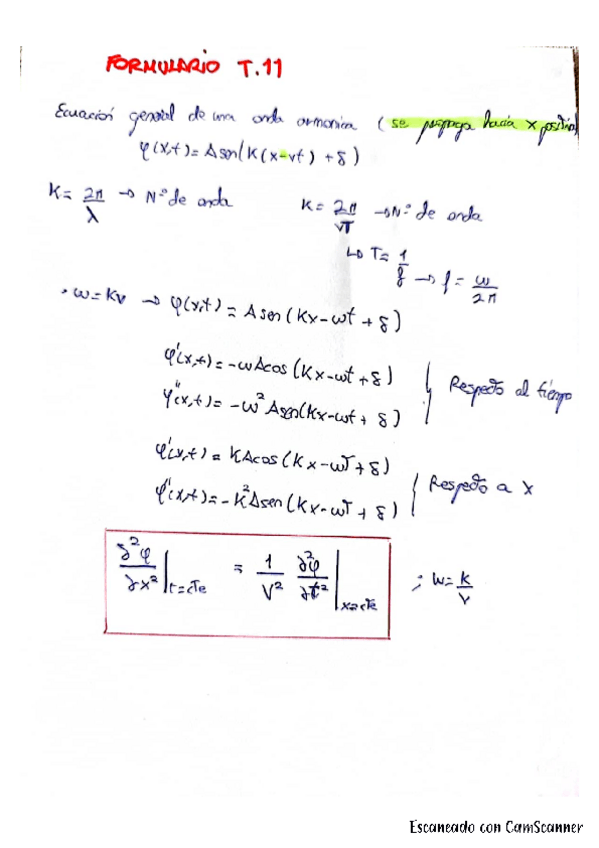 FORMULARIO T.11
Ecuación general de una onda armonica (se propaga hacia x positiva)
φ(x,t)=A sen(K(x-vt)+δ)
K= 2π/λ → Nº de onda    K= 2π/vT → Nº de onda
↳ T= 1/f → f= ω/2π
· ω=Kv → φ(x,t)=A sen(Kx-ωt+δ)
φ'(x,t)=-ωAcos(Kx-ωt+δ)
φ''(x,t)=-ω²Asen(Kx-ωt+δ)    Respecto al tiempo
φ'(x,t)=KAcos(Kx-ωT+δ)
φ''(x,t)=-K²Asen(Kx-ωT+δ)    Respecto a x
∂²φ/∂x²|t=cTe = 1/V² ∂²φ/∂t²|x=cTe ; W=K/v
Escaneado con CamScanner